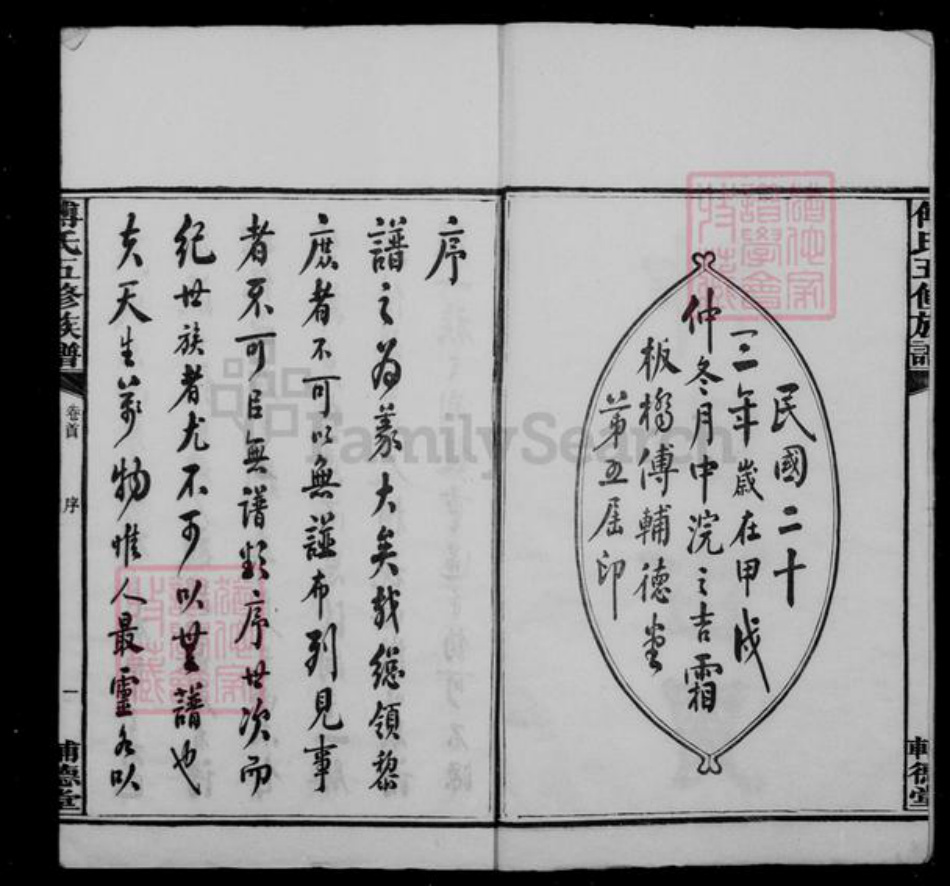 民國二十
三年歲在甲戌
仲冬月中浣之吉霜
板橋傅輔德堂
第五屆印
傅氏五修族譜
卷首
序
一
輔德堂
序
譜之為義大矣哉總領黎
庶者不可以無譜布列見事
者不可㠯無譜類序世次而
紀世族者尤不可以無譜也
夫天生萬物惟人最靈名以
FamilySearch